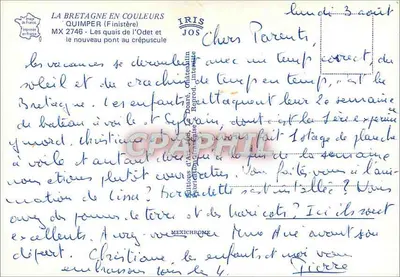 LA BRETAGNE EN COULEURS
QUIMPER (Finistère)
MX 2746 - Les quais de l'Odet et
le nouveau pont au crépuscule
IRIS
JOS
MEXICHROME
lundi 3 août
Chers Parents,
les vacances se déroulent avec un temps correct, du
soleil et du crachin de temps en temps, c'est la
Bretagne. Les enfants attaquent leur 2e semaine
de bateau à voile et Sylvain, dont c'est la 1ère expérience
y mord. Christiane 1 stage de planche
à voile et autant la semaine
nous étions plutôt courbatus. Vous faites vous à l'ani-
mation de Lina? Bernadette est installée? Vous
avez des pommes de terre et des haricots? Ici ils sont
excellents. Avez-vous revu Mme avant son
départ. Christiane, les enfants et moi vous
embrassons tous les 4.
Pierre